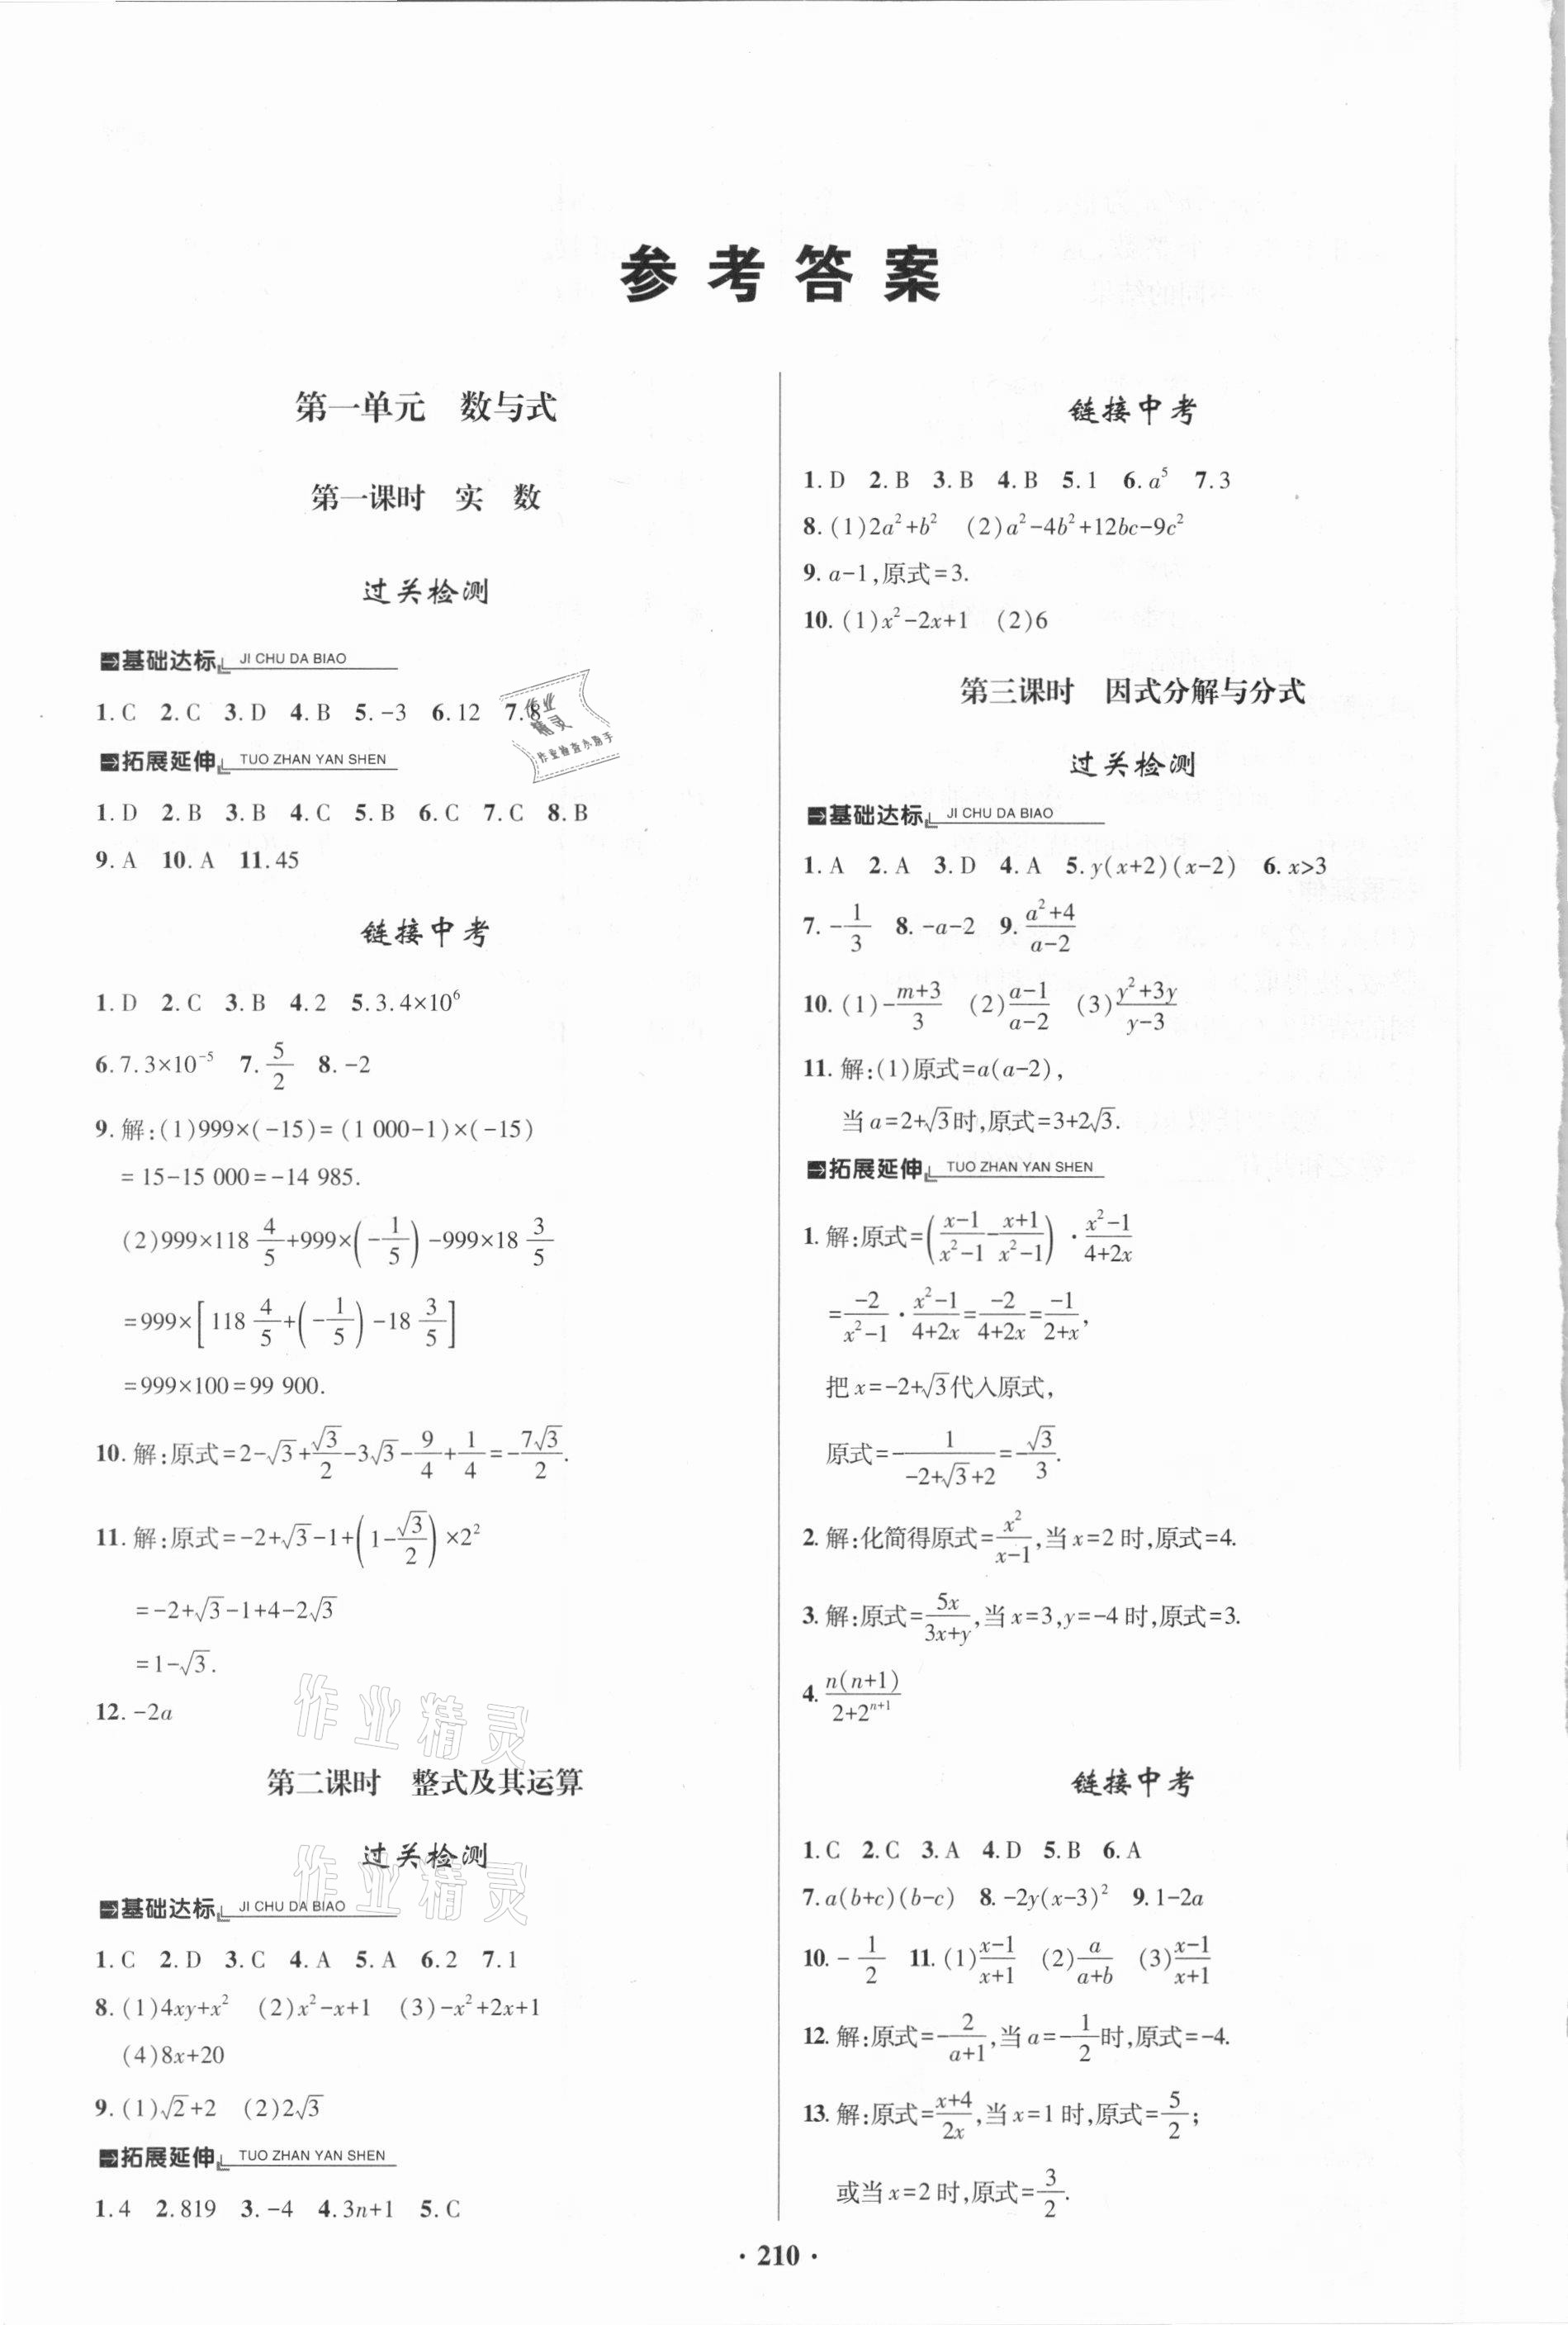 参考答案
第一单元　数与式
第一课时　实　数
过关检测
基础达标 JI CHU DA BIAO
1. C 2. C 3. D 4. B 5. -3 6. 12 7. 8
拓展延伸 TUO ZHAN YAN SHEN
1. D 2. B 3. B 4. C 5. B 6. C 7. C 8. B
9. A 10. A 11. 45
链接中考
1. D 2. C 3. B 4. 2 5. 3.4×10⁶
6. 7.3×10⁻⁵ 7. 5/2 8. -2
9. 解:(1)999×(-15)=(1 000-1)×(-15)
=15-15 000=-14 985.
(2)999×118 4/5+999×(-1/5)-999×18 3/5
=999×[118 4/5+(-1/5)-18 3/5]
=999×100=99 900.
10. 解:原式=2-√3+√3/2-3√3-9/4+1/4=-7√3/2.
11. 解:原式=-2+√3-1+(1-√3/2)×2²
=-2+√3-1+4-2√3
=1-√3.
12. -2a
第二课时　整式及其运算
过关检测
基础达标 JI CHU DA BIAO
1. C 2. D 3. C 4. A 5. A 6. 2 7. 1
8. (1)4xy+x² (2)x²-x+1 (3)-x²+2x+1
(4)8x+20
9. (1)√2+2 (2)2√3
拓展延伸 TUO ZHAN YAN SHEN
1. 4 2. 819 3. -4 4. 3n+1 5. C
链接中考
1. D 2. B 3. B 4. B 5. 1 6. a⁵ 7. 3
8. (1)2a²+b² (2)a²-4b²+12bc-9c²
9. a-1,原式=3.
10. (1)x²-2x+1 (2)6
第三课时　因式分解与分式
过关检测
基础达标 JI CHU DA BIAO
1. A 2. A 3. D 4. A 5. y(x+2)(x-2) 6. x>3
7. -1/3 8. -a-2 9. (a²+4)/(a-2)
10. (1)-(m+3)/3 (2)(a-1)/(a-2) (3)(y²+3y)/(y-3)
11. 解:(1)原式=a(a-2),
当a=2+√3时,原式=3+2√3.
拓展延伸 TUO ZHAN YAN SHEN
1. 解:原式=((x-1)/(x²-1)-(x+1)/(x²-1))·(x²-1)/(4+2x)
=-2/(x²-1)·(x²-1)/(4+2x)=-2/(4+2x)=-1/(2+x),
把x=-2+√3代入原式,
原式=-1/(-2+√3+2)=-√3/3.
2. 解:化简得原式=x²/(x-1),当x=2时,原式=4.
3. 解:原式=5x/(3x+y),当x=3,y=-4时,原式=3.
4. n(n+1)/(2+2ⁿ⁺¹)
链接中考
1. C 2. C 3. A 4. D 5. B 6. A
7. a(b+c)(b-c) 8. -2y(x-3)² 9. 1-2a
10. -1/2 11. (1)(x-1)/(x+1) (2)a/(a+b) (3)(x-1)/(x+1)
12. 解:原式=-2/(a+1),当a=-1/2时,原式=-4.
13. 解:原式=(x+4)/2x,当x=1时,原式=5/2;
或当x=2时,原式=3/2.
· 210 ·
作业精灵
作业检查小助手
作业精灵
作业精灵